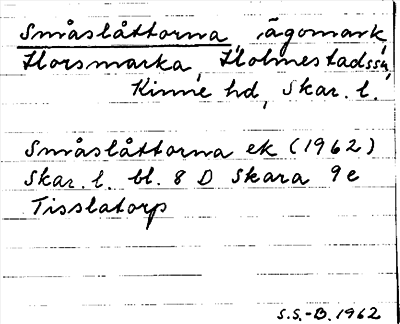 Småslåttorna, ägomark,
Horsmarka, Holmestadssn,
Kinne hd, Skar. l.
Småslåttorna ek (1962)
Skar. l. bl. 8 D Skara 9e
Tisslatorp
S.S.-B. 1962